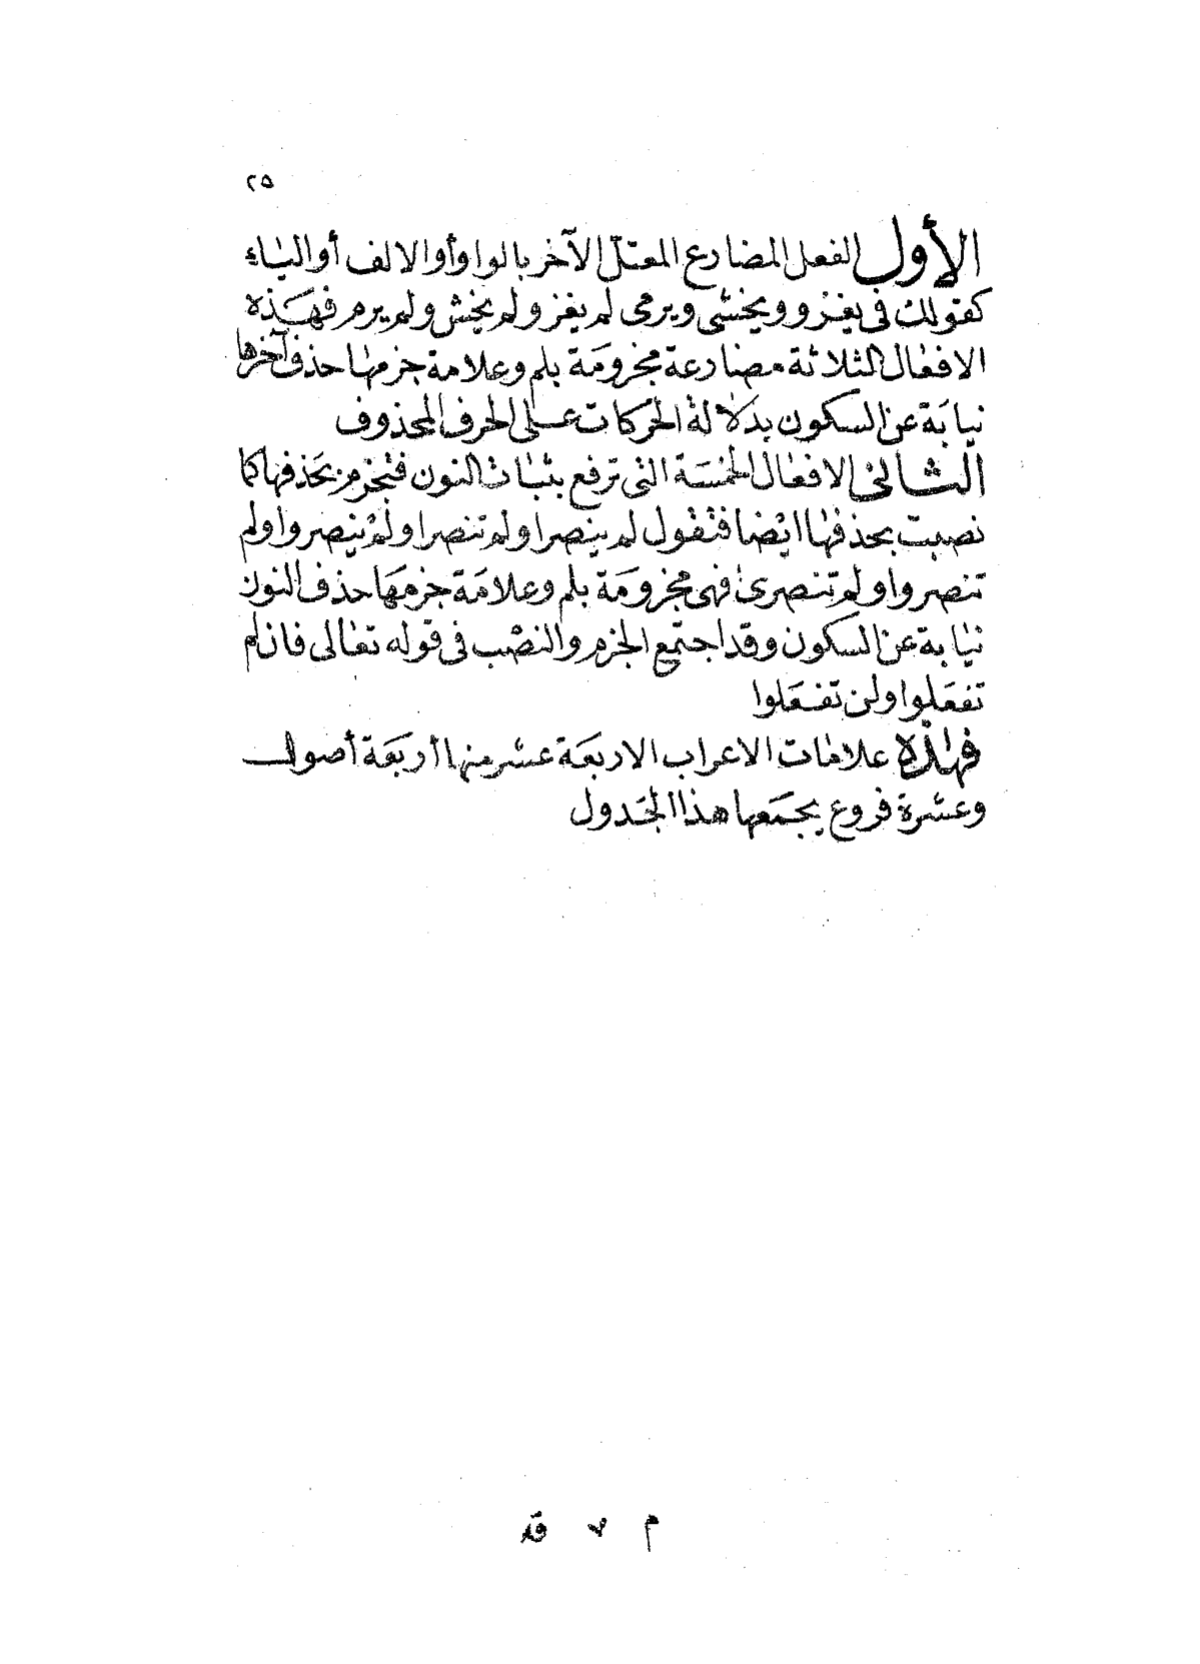 ٢٥
الأول الفعل المضارع المعتلّ الآخر بالواو أو الالف أو الياء
كقولك في يغزو ويخشى ويرمى لم يغز ولم يخش ولم يرم فهذه
الافعال الثلاثة مضارعة مجزومة بلم وعلامة جزمها حذف آخرها
نيابة عن السكون بدلالة الحركات على الحرف المحذوف
الثانى الافعال الخمسة التى ترفع بثبات النون فتجزم بحذفها كما
نصبت بحذفها ايضا فتقول لم ينصرا ولم تنصرا ولم ينصروا ولم
تنصروا ولم تنصرى فهى مجزومة بلم وعلامة جزمها حذف النون
نيابة عن السكون وقد اجتمع الجزم والنصب فى قوله تعالى فان لم
تفعلوا ولن تفعلوا
فهذه علامات الاعراب الاربعة عشر منها أربعة أصول
وعشرة فروع يجمعها هذا الجدول
م ٧ قد